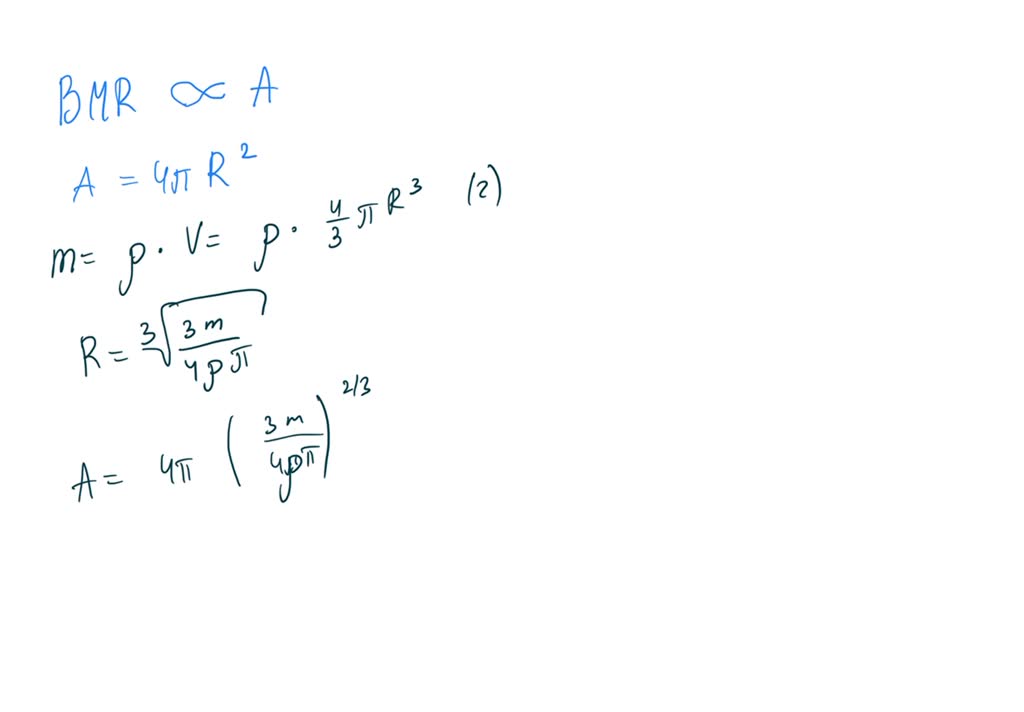 BMR ∝ A
A = 4π R²
m = ρ · V = ρ · 4/3 π R³ (2)
R = ∛(3m / 4ρπ)
A = 4π (3m / 4ρπ)^2/3